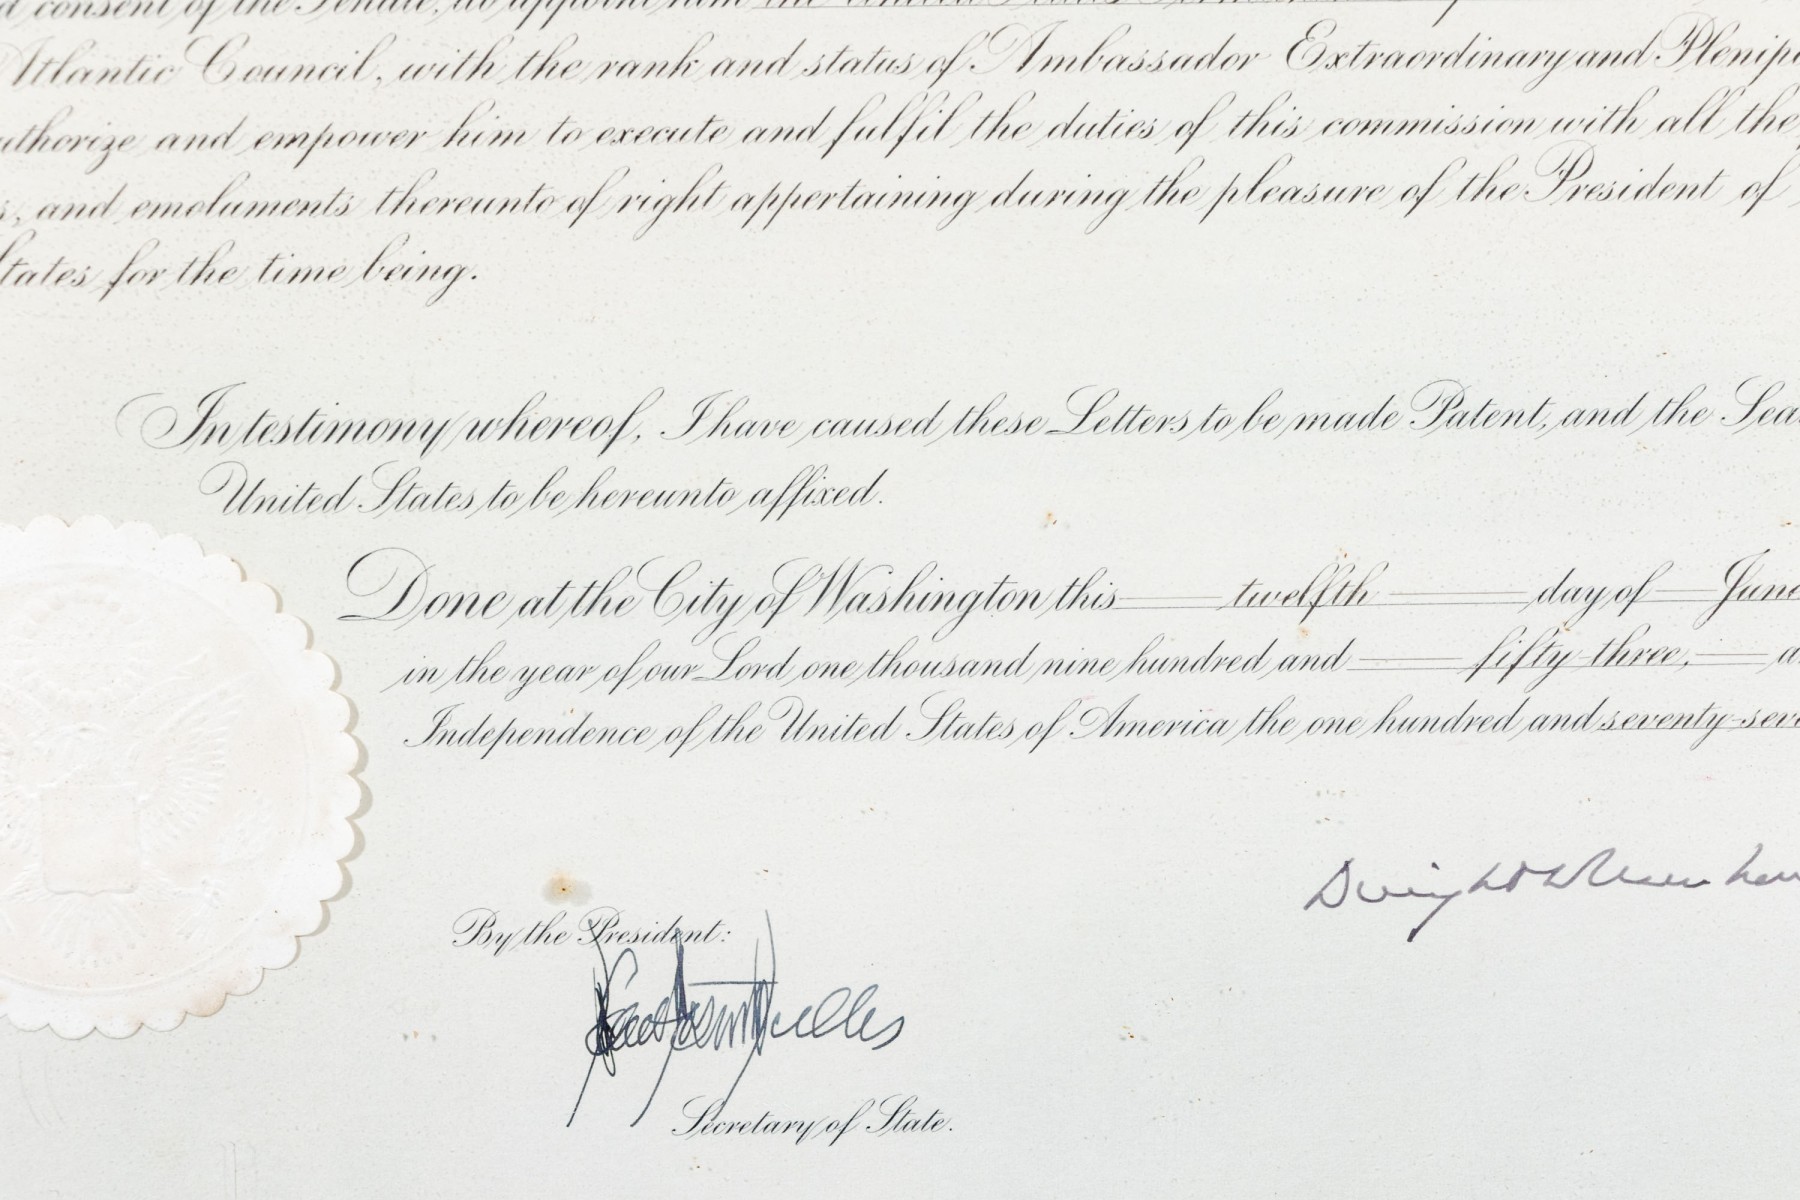 consent of the Senate, do appoint him the United States
Atlantic Council, with the rank and status of Ambassador Extraordinary and Plenipo
uthorize and empower him to execute and fulfil the duties of this commission with all the
s, and emoluments thereunto of right appertaining during the pleasure of the President of
States for the time being.
In testimony whereof, I have caused these Letters to be made Patent, and the Sea
United States to be hereunto affixed.
Done at the City of Washington this twelfth day of June
in the year of our Lord one thousand nine hundred and fifty-three, a
Independence of the United States of America the one hundred and seventy-seve
Dwight D Eisenhow
By the President:
John Foster Dulles
Secretary of State.